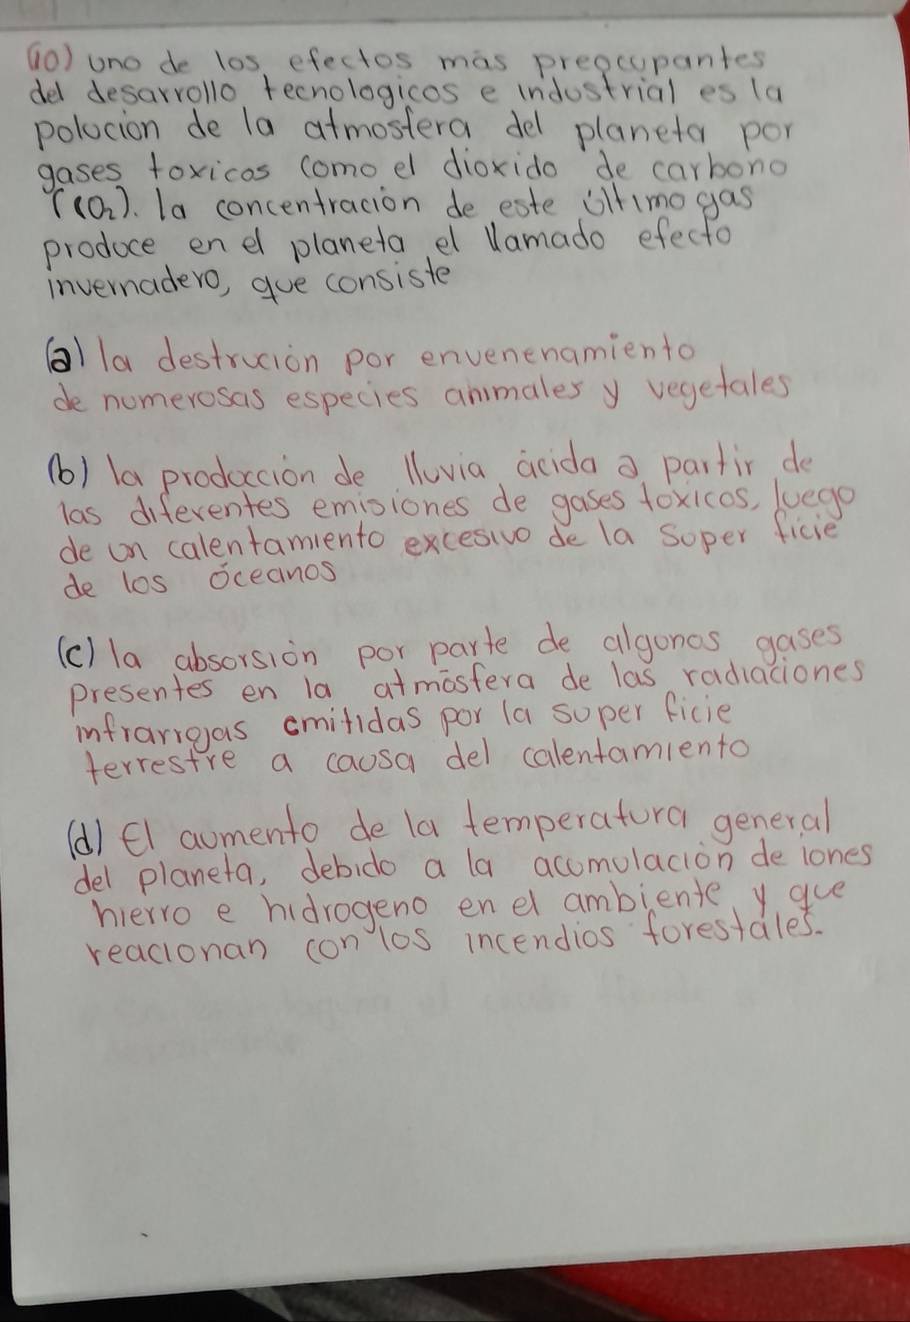 (10) uno de los efectos más preocupantes
del desarrollo tecnologicos e industrial es la
polucion de la atmosfera del planeta por
gases toxicos como el dioxido de carbono
(CO₂). la concentración de este último gas
produce en el planeta el llamado efecto
invernadero, que consiste
(a) la destrucción por envenenamiento
de numerosas especies animales y vegetales
(b) la producción de lluvia ácida a partir de
las diferentes emisiones de gases toxicos, luego
de un calentamiento excesivo de la super ficie
de los óceanos
(c) la absorsión por parte de algunos gases
presentes en la atmósfera de las radiaciones
infrarrojas emitidas por la super ficie
terrestre a causa del calentamiento
(d) El aumento de la temperatura general
del planeta, debido a la acumulación de iones
hierro e hidrogeno en el ambiente y que
reacionan con los incendios forestales.